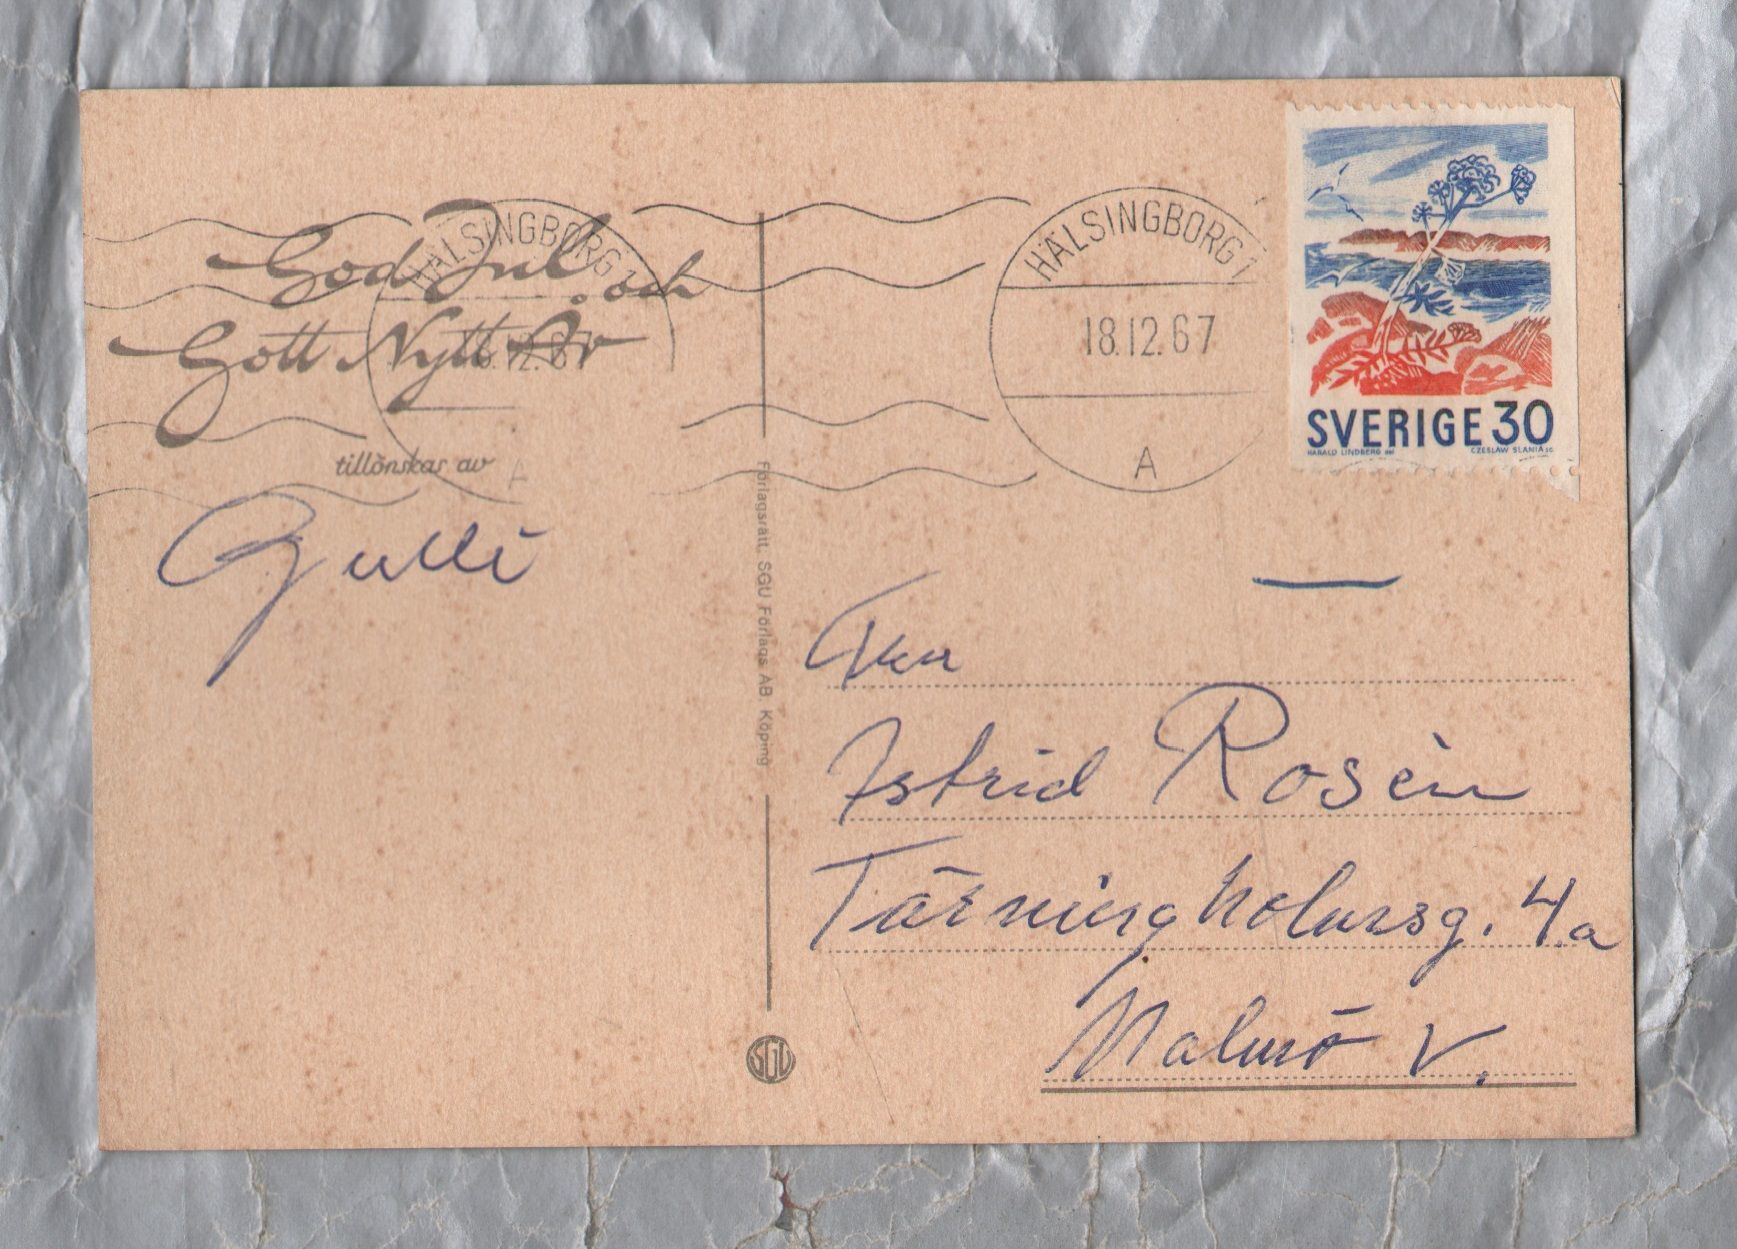 God Jul och
Gott Nytt År
tillönskas av
Gulli
HÄLSINGBORG 1
18.12.67
A
HÄLSINGBORG 1
18.12.67
A
SVERIGE 30
HARALD LINDBERG del
CZESLAW SLANIA sc
Förlagsrätt. SGU Förlags AB Köping
SGU
Fru
Astrid Rosén
Tärningholmsg. 4a
Malmö V.